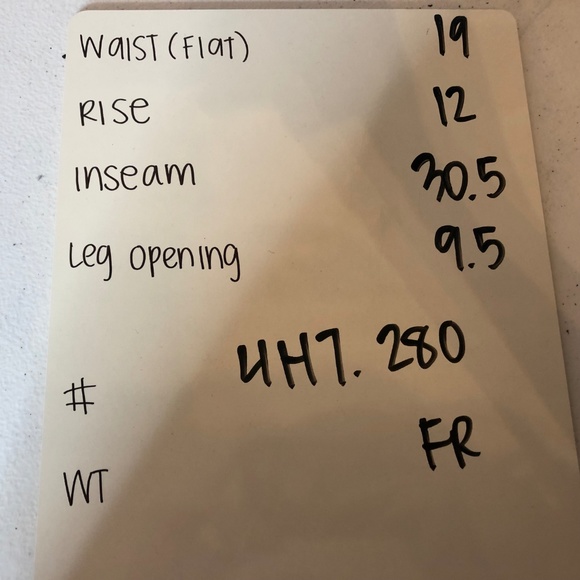 Waist (Flat) 19
Rise 12
inseam 30.5
Leg opening 9.5
# 4H7. 280
WT FR